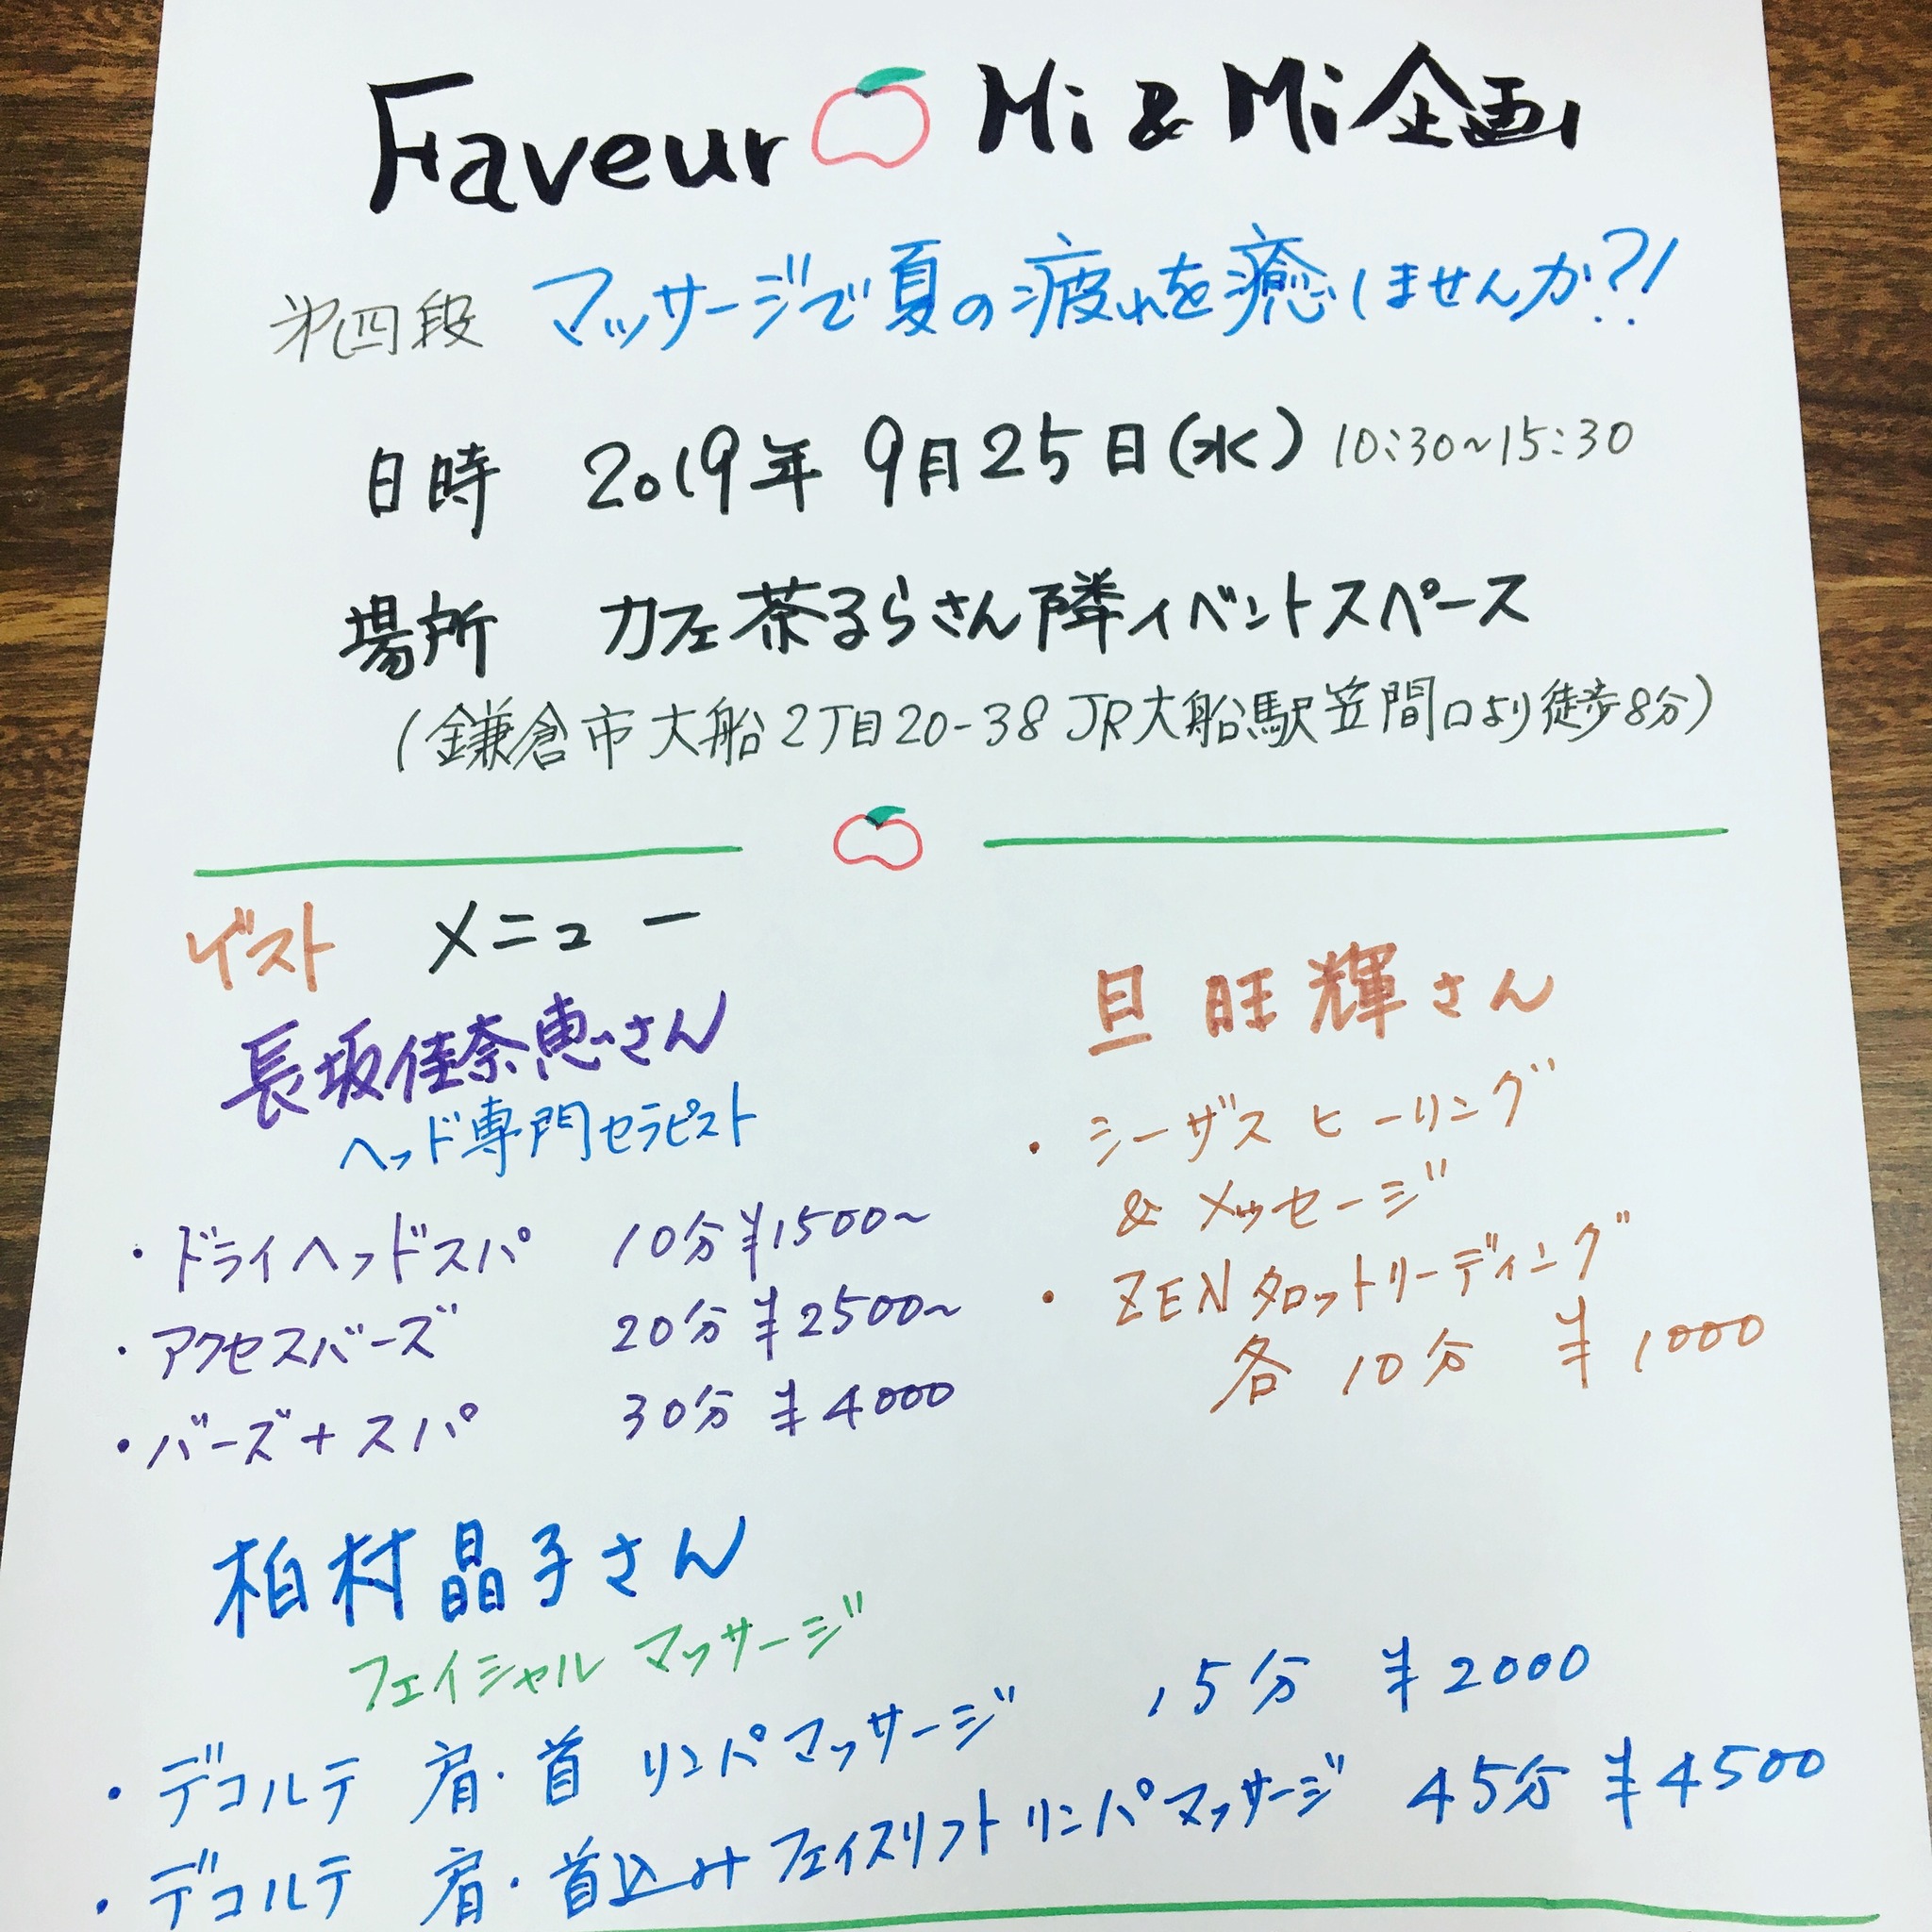 Faveur Mi & Mi企画
第四段 マッサージで夏の疲れを癒しませんか?!
日時 2019年 9月25日(水) 10:30~15:30
場所 カフェ茶るらさん隣イベントスペース
(鎌倉市大船2丁目20-38 JR大船駅笠間口より徒歩8分)
ゲスト メニュー
長坂佳奈恵さん
ヘッド専門セラピスト
・ドライヘッドスパ 10分¥1500~
・アクセスバーズ 20分¥2500~
・バーズ+スパ 30分¥4000
旦 旺輝さん
・シーザス ヒーリング
& メッセージ
・ZENタロットリーディング
各 10分 ¥1000
柏村晶子さん
フェイシャル マッサージ
・デコルテ 肩・首 リンパマッサージ 15分 ¥2000
・デコルテ 肩・首込み フェイスリフトリンパマッサージ 45分 ¥4500